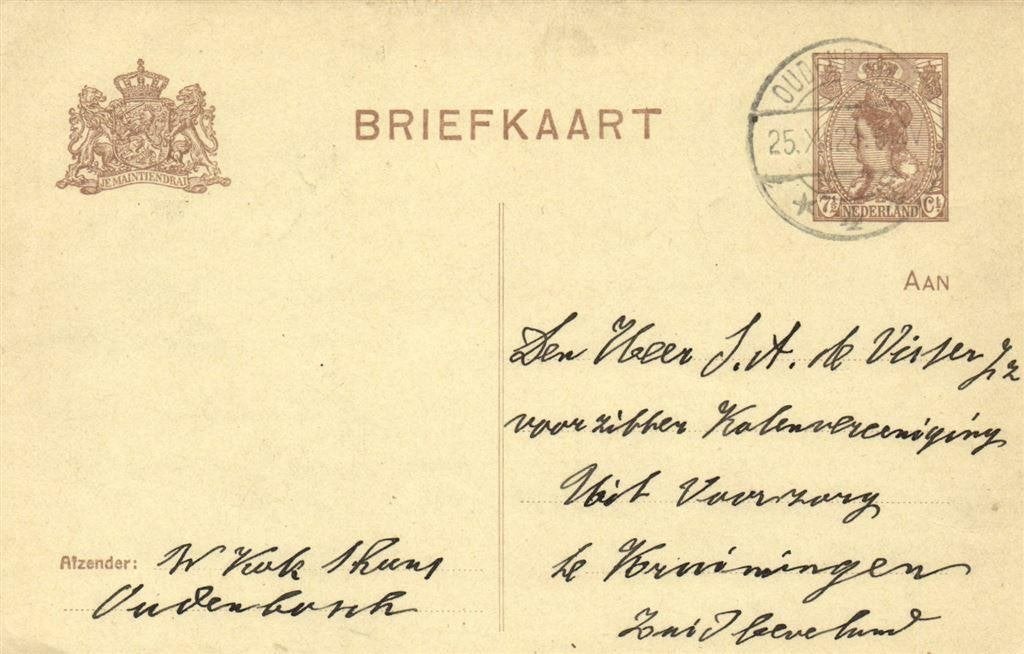 BRIEFKAART
JE MAINTIENDRAI
OUDENBO
25.X
7½ NEDERLAND Ct
AAN
Den Heer S. A. de Visser Jz
voorzitter Kolenvereeniging
Uit Voorzorg
te Kruiningen
Zuid beveland
Afzender: W Kok
Oudenbosch